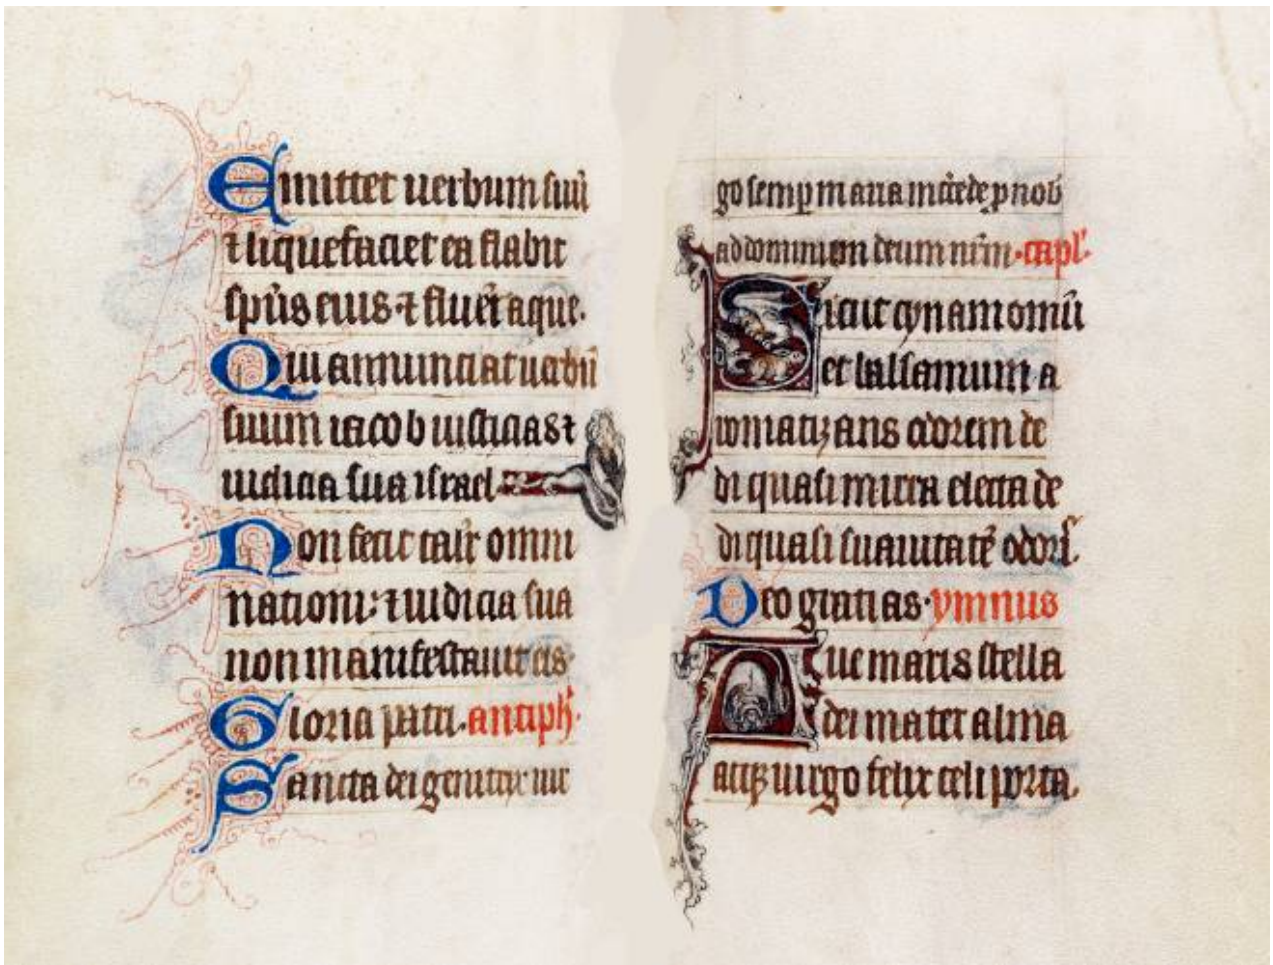 Emittet uerbum suū
⁊ liquefaciet ea flabit
sp̄us eius ⁊ fluēt aque.
Qui annunciat uerbū
suum iacob iusticias ⁊
iudicia sua israel
Non fecit talit͛ omni
nationi: ⁊ iudicia sua
non manifestauit eis.
Gloria patri. antiph̄.
Sancta dei genitrix uir
go semp̲ maria int̄cede p̲ nob̄
ad dominum deum nr̄m. capl̄.
Sicut cynamomū
et balsamum a
romatizans odorem de
di quasi mirra electa de
di quasi suauitatē odoris.
Deo gratias. ymnus
Aue maris stella
dei mater alma
atqꝫ uirgo felix celi porta.